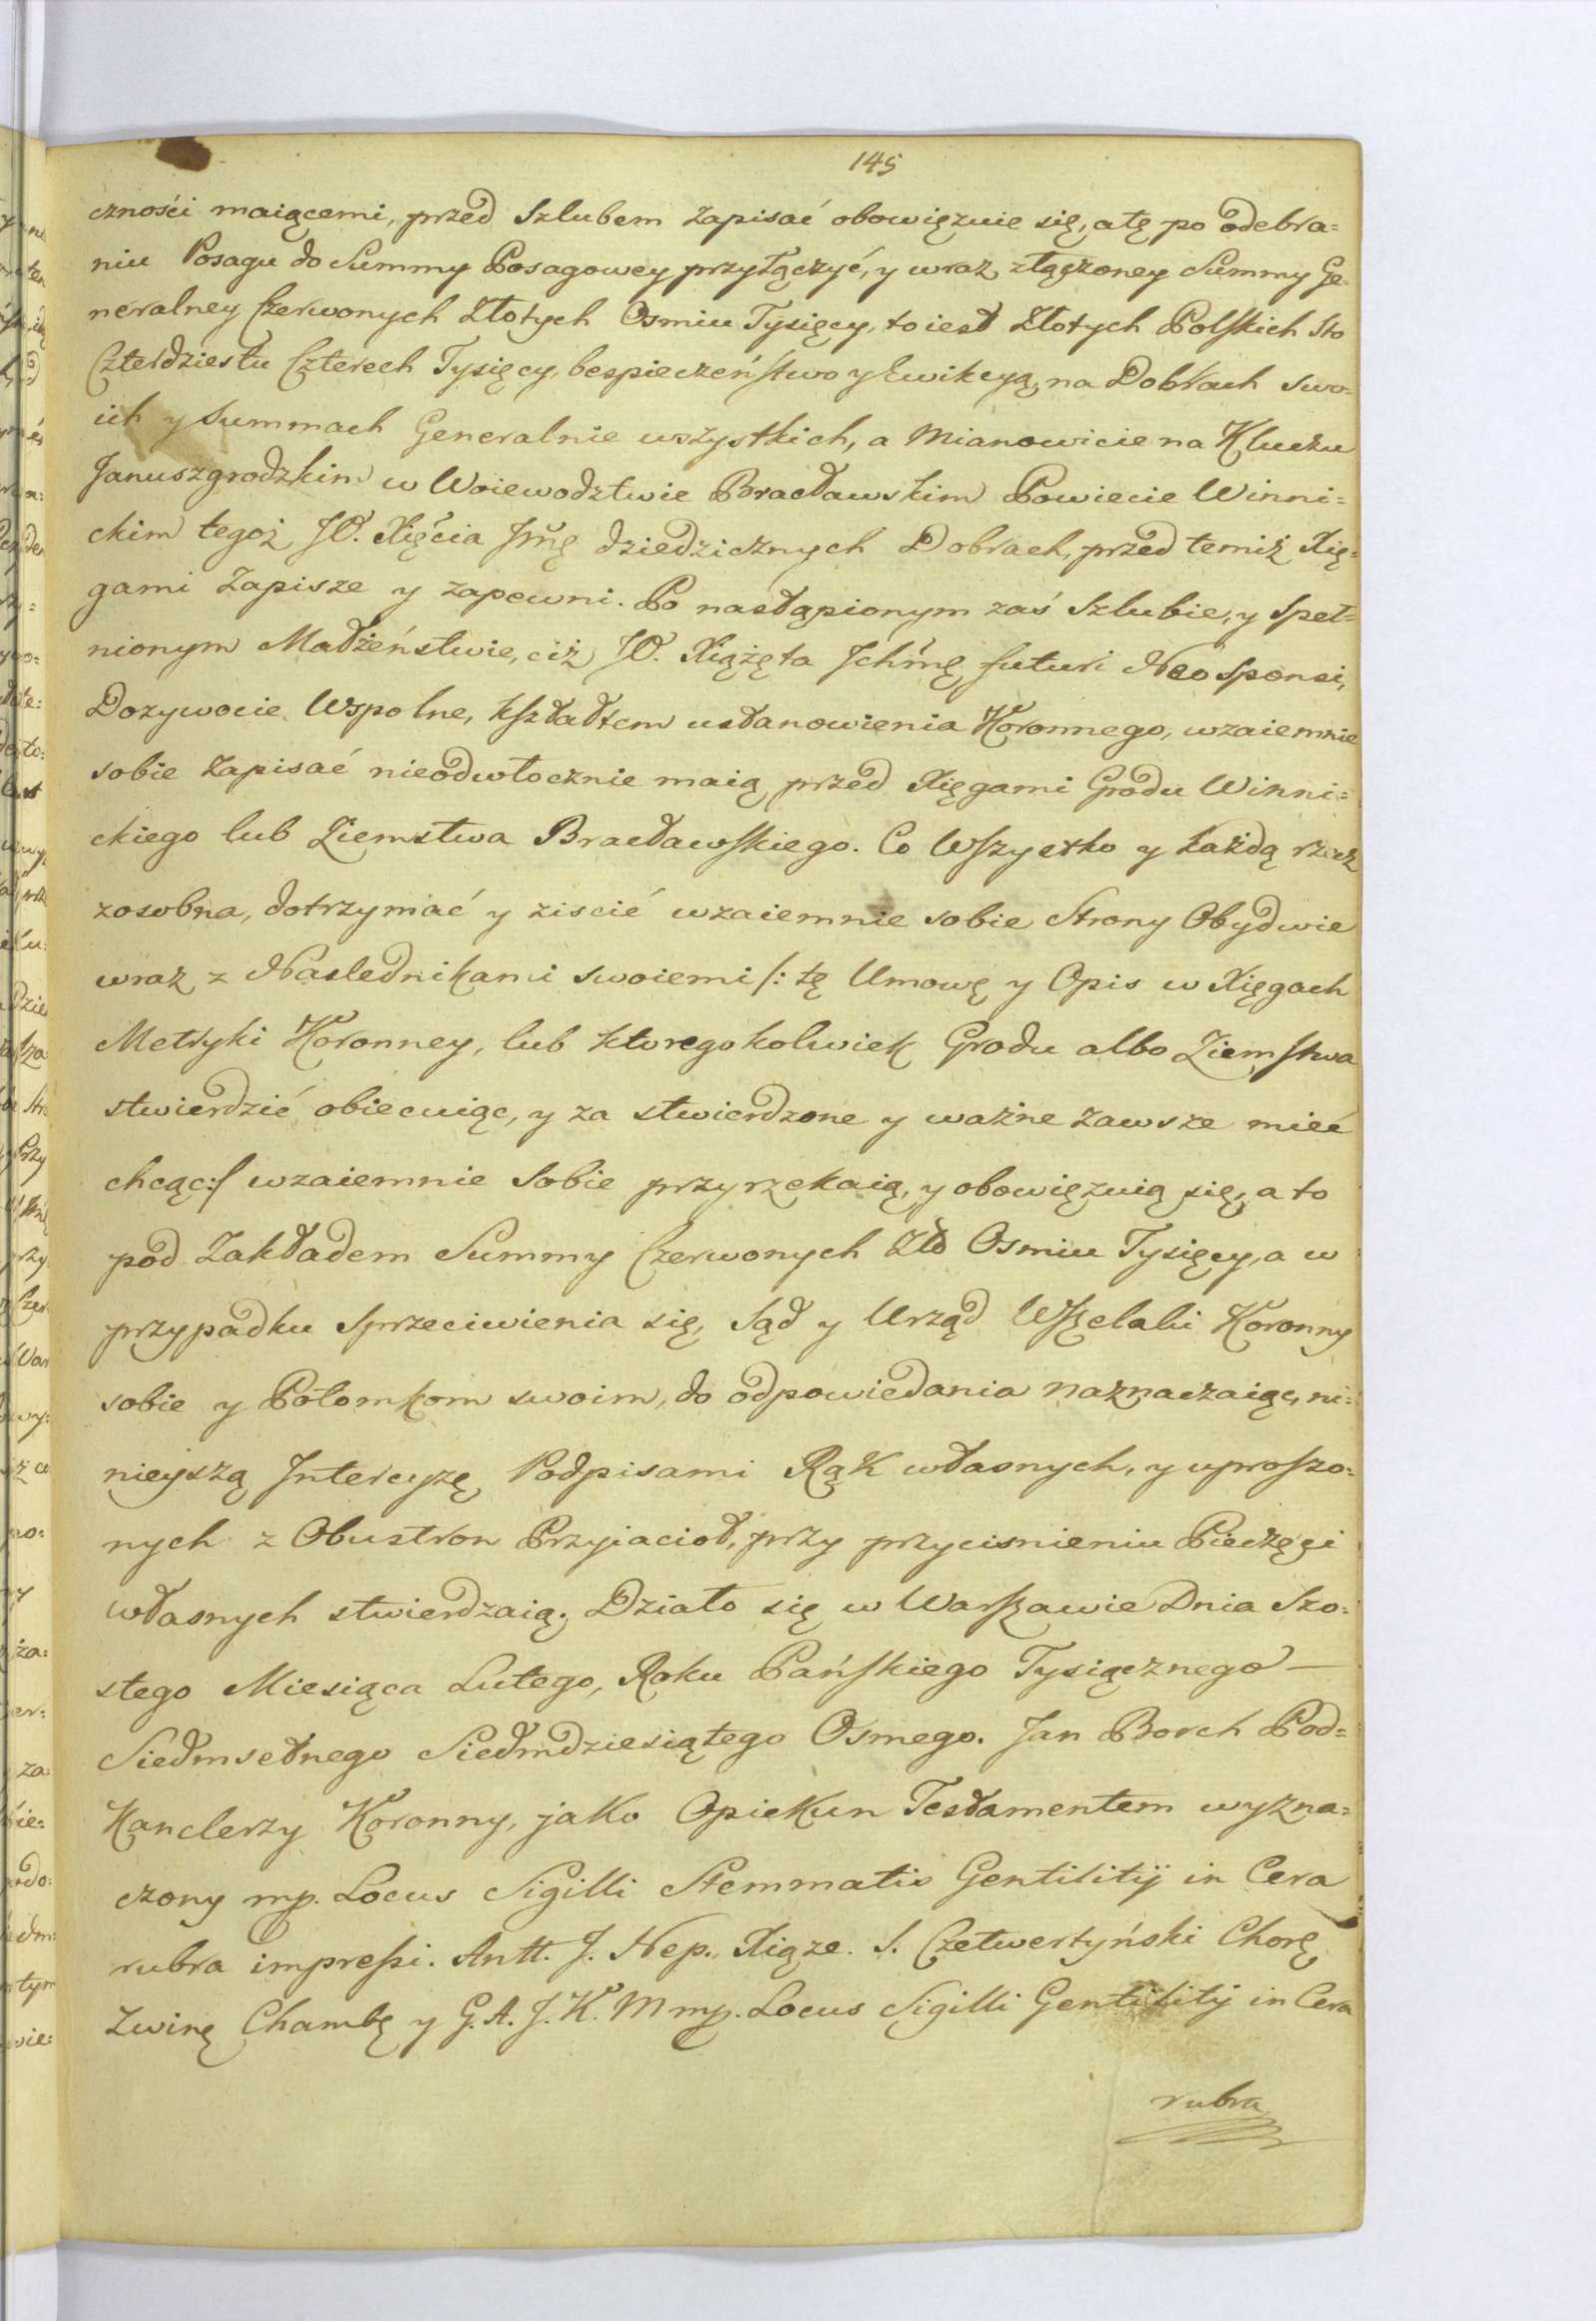 145
czności maiącemi, przed Szlubem zapisać obowięzuie się, a tę po odebra=
niu Posagu do Summy Posagowey przyłączyć, y wraz złączoney Summy Ge=
neralney Czerwonych Złotych Osmiu Tysięcy, to iest Złotych Polskich Sto
Czterdziestu Czterech Tysięcy, bespieczeństwo y Ewikcyą, na Dobrach swo=
ich y Summach Generalnie wszystkich, a mianowicie na Kluczu
Januszgrodzkim w Woiewodztwie Bracławskim Powiecie Winni=
ckim tegoż JO. Xięcia Jmę dziedzicznych Dobrach, przed temiż Xię=
gami Zapisze y zapewni. Po nastąpionym zaś Szlubie, y Speł=
nionym Małżeństwie, ciż JO. Xiążęta Ichmę futuri Neo Sponsi,
Dozywocie Wspolne, kształtem ustanowienia Koronnego, wzaiemnie
sobie Zapisać nieodwłocznie maią przed Xięgami Grodu Winni=
ckiego lub Ziemstwa Bracławskiego. Co Wszystko y każdą rzecz
zosobna, dotrzymać y ziscić wzaiemnie sobie Strony Obydwie
wraz z Naslednikami swoiemi /: tę Umowę y Opis w Xięgach
Metryki Koronney, lub ktoregokolwiek Grodu albo Ziemstwa
stwierdzić obiecuiąc, y za stwierdzone y ważne zawsze mieć
chcąc :/ wzaiemnie Sobie przyrzekaią, y obowięzuią się, a to
pod Zakładem Summy Czerwonych Złł Osmiu Tysięcy, a w
przypadku Sprzeciwienia się, Sąd y Urząd Wszelaki Koronny
sobie y Potomkom swoim, do odpowiedania naznaczaiąc, ni=
nieyszą Intercyzę, Podpisami Rąk własnych, y uproszo=
nych z Obustron Przyiacioł, przy przycisnieniu Pieczęci
własnych stwierdzaią. Działo się w Warszawie Dnia Szo=
stego Miesiąca Lutego, Roku Pańskiego Tysiącznego
Siedmsetnego Siedmdziesiątego Osmego. Jan Borch Pod=
Kanclerzy Koronny, jako Opiekun Testamentem wyzna=
czony mp. Locus Sigilli Stemmatis Gentilitij in Cera
rubra impressi. Antt. J. Nep. Xiąze S. Czetwertyński Chorę
Zwinę Chambę y G. A. J. K. M mp. Locus Sigilli Gentilitij in Cera
rubra